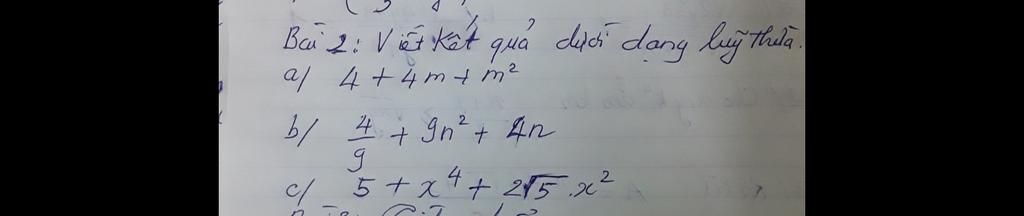 Bài 2: Viết kết quả dưới dạng luỹ thừa.
a/ 4 + 4m + m²
b/ 4/9 + 9n² + 4n
c/ 5 + x⁴ + 2√5 . x²